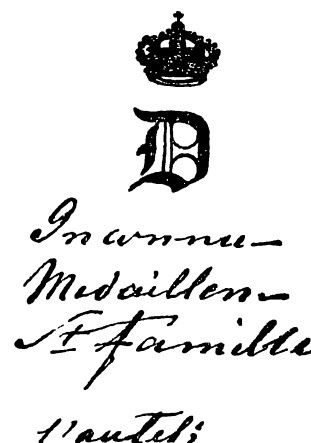 D
Inconnu—
Medaillon—
St famille
l'autel;